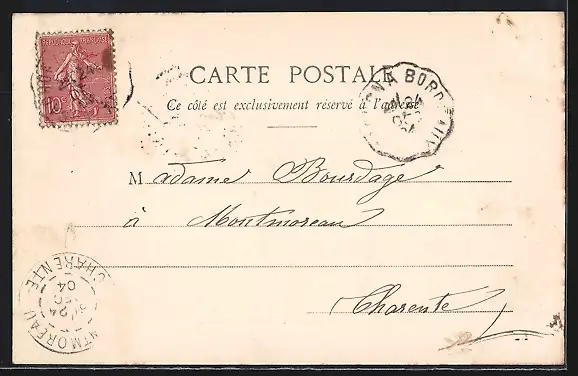 REPUBLIQUE FRANÇAISE
10c
CARTE POSTALE
Ce côté est exclusivement réservé à l'adresse
BORDEAUX
24
04
Madame Bourdage
à Montmoreau
Charente
MONTMOREAU
CHARENTE
24
04